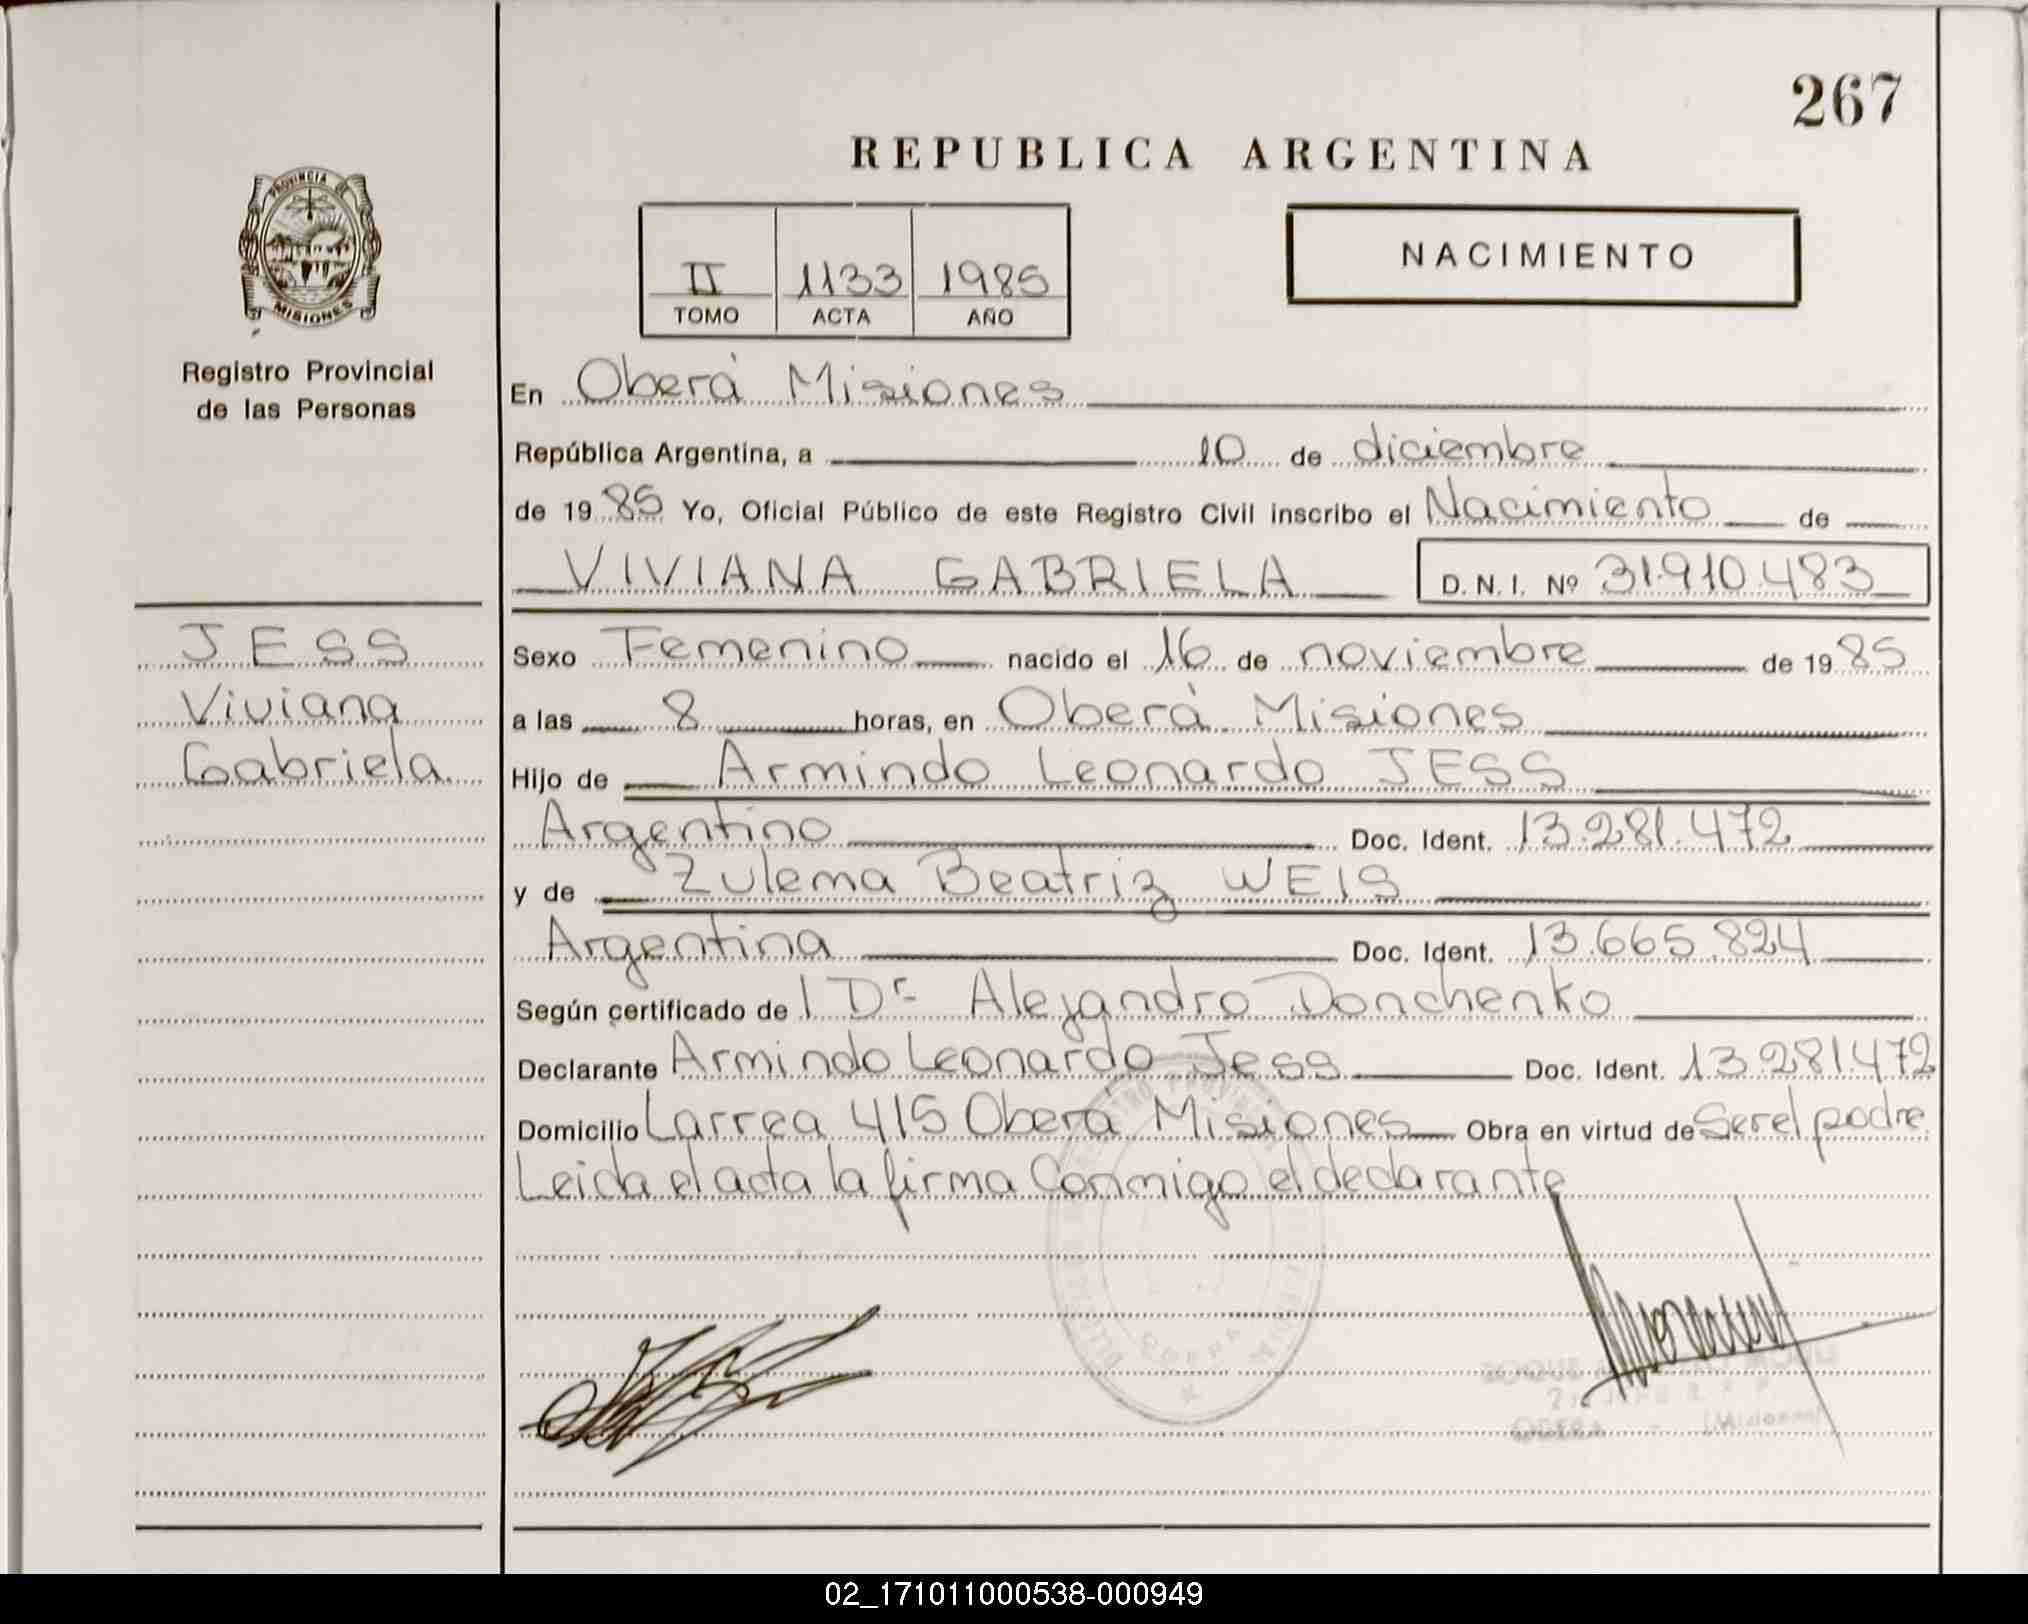 267
REPUBLICA ARGENTINA
PROVINCIA DE
MISIONES
Registro Provincial
de las Personas
II 1133 1985
TOMO ACTA AÑO
NACIMIENTO
En Oberá Misiones
República Argentina, a 10 de diciembre
de 1985 Yo, Oficial Público de este Registro Civil inscribo el Nacimiento de
VIVIANA GABRIELA D.N.I. Nº 31.910.483
JESS
Viviana
Gabriela
Sexo Femenino nacido el 16 de noviembre de 1985
a las 8 horas, en Oberá Misiones
Hijo de Armindo Leonardo JESS
Argentino Doc. Ident. 13.281.472
y de Zulema Beatriz WEIS
Argentina Doc. Ident. 13.665.824
Según certificado de l Dr Alejandro Donchenko
Declarante Armindo Leonardo Jess Doc. Ident. 13.281.472
Domicilio Larrea 415 Oberá Misiones Obra en virtud de Ser el padre
Leida el acta la firma Conmigo el declarante
ROQUE
OBERA - (Misiones)
02_171011000538-000949